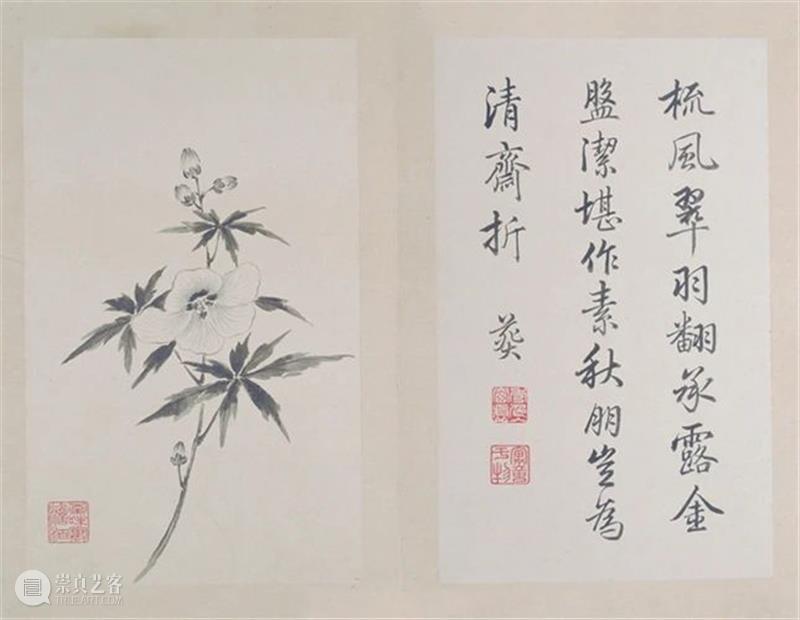 梳風翠羽翻承露金
盤潔堪作素秋朋豈為
清齋折 葵
崇真艺客
TRUEART.COM